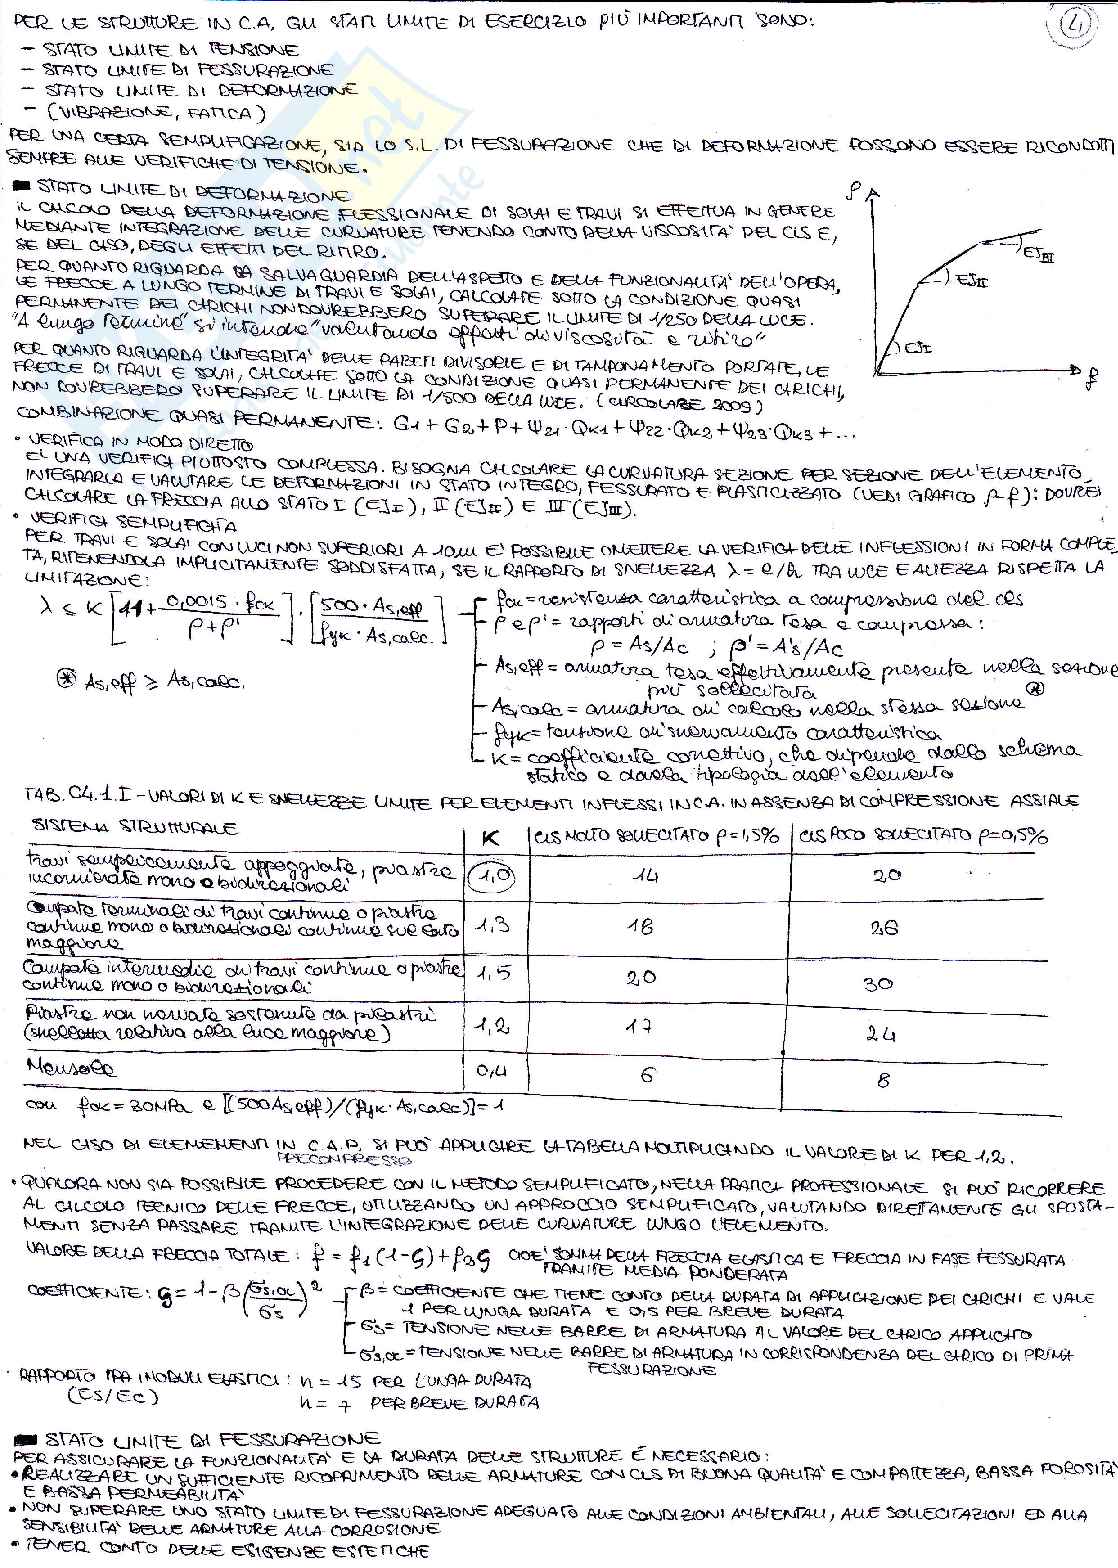 PER LE STRUTTURE IN C.A. GLI STATI LIMITE DI ESERCIZIO PIÙ IMPORTANTI SONO:
4
- STATO LIMITE DI TENSIONE
- STATO LIMITE DI FESSURAZIONE
- STATO LIMITE DI DEFORMAZIONE
- (VIBRAZIONE, FATICA)
PER UNA CERTA SEMPLIFICAZIONE, SIA LO S.L. DI FESSURAZIONE CHE DI DEFORMAZIONE POSSONO ESSERE RICONDOTTI
SEMPRE ALLE VERIFICHE DI TENSIONE.
■ STATO LIMITE DI DEFORMAZIONE
IL CALCOLO DELLA DEFORMAZIONE FLESSIONALE DI SOLAI E TRAVI SI EFFETTUA IN GENERE
MEDIANTE INTEGRAZIONE DELLE CURVATURE TENENDO CONTO DELLA VISCOSITA' DEL CLS E,
SE DEL CASO, DEGLI EFFETTI DEL RITIRO.
PER QUANTO RIGUARDA LA SALVAGUARDIA DELL'ASPETTO E DELLA FUNZIONALITA' DELL'OPERA,
LE FRECCE A LUNGO TERMINE DI TRAVI E SOLAI, CALCOLATE SOTTO LA CONDIZIONE QUASI
PERMANENTE DEI CARICHI NON DOVREBBERO SUPERARE IL LIMITE DI 1/250 DELLA LUCE.
"A lungo termine" si intende "valutando effetti di viscosità e ritiro"
PER QUANTO RIGUARDA L'INTEGRITA' DELLE PARETI DIVISORIE E DI TAMPONAMENTO PORTATE, LE
FRECCE DI TRAVI E SOLAI, CALCOLATE SOTTO LA CONDIZIONE QUASI PERMANENTE DEI CARICHI,
NON DOVREBBERO SUPERARE IL LIMITE DI 1/500 DELLA LUCE. (CIRCOLARE 2009)
ρ
EJIII
EJII
EJI
f
COMBINAZIONE QUASI PERMANENTE: G1 + G2 + P + Ψ21·Qk1 + Ψ22·Qk2 + Ψ23·Qk3 + ...
• VERIFICA IN MODO DIRETTO
E' UNA VERIFICA PIUTTOSTO COMPLESSA. BISOGNA CALCOLARE LA CURVATURA SEZIONE PER SEZIONE DELL'ELEMENTO,
INTEGRARLA E VALUTARE LE DEFORMAZIONI IN STATO INTEGRO, FESSURATO E PLASTICIZZATO (VEDI GRAFICO ρ-f): DOVREI
CALCOLARE LA FRECCIA ALLO STATO I (EJI), II (EJII) E III (EJIII).
• VERIFICA SEMPLIFICATA
PER TRAVI E SOLAI CON LUCI NON SUPERIORI A 10m E' POSSIBILE OMETTERE LA VERIFICA DELLE INFLESSIONI IN FORMA COMPLE-
TA, RITENENDOLA IMPLICITAMENTE SODDISFATTA, SE IL RAPPORTO DI SNELLEZZA λ = l/h TRA LUCE E ALTEZZA RISPETTA LA
LIMITAZIONE:
λ ≤ K [11 + 0,0015·fck / ρ+ρ'] · [500·As,eff / fyk·As,calc]
⊛ As,eff ≥ As,calc.
fck = resistenza caratteristica a compressione del cls
ρ e ρ' = rapporti di armatura tesa e compressa:
ρ = As/Ac ; ρ' = A's/Ac
As,eff = armatura tesa effettivamente presente nella sezione
più sollecitata
As,calc = armatura di calcolo nella stessa sezione ⊛
fyk = tensione di snervamento caratteristica
K = coefficiente correttivo, che dipende dallo schema
statico e dalla tipologia dell'elemento
TAB. C4.1.I - VALORI DI K E SNELLEZZE LIMITE PER ELEMENTI INFLESSI IN C.A. IN ASSENZA DI COMPRESSIONE ASSIALE
SISTEMA STRUTTURALE K CLS MOLTO SOLLECITATO ρ=1,5% CLS POCO SOLLECITATO ρ=0,5%
travi semplicemente appoggiate, piastre
incernierate mono o bidirezionali 1,0 14 20
Campate terminali di travi continue o piastre
continue mono o bidirezionali continue sul lato
maggiore 1,3 18 26
Campate intermedie di travi continue o piastre
continue mono o bidirezionali 1,5 20 30
Piastre non nervate sostenute da pilastri
(snellezza relativa alla luce maggiore) 1,2 17 24
Mensole 0,4 6 8
con fck = 30MPa e [(500 As,eff)/(fyk·As,calc)] = 1
NEL CASO DI ELEMEMENTI IN C.A.P. SI PUO' APPLICARE LA TABELLA MOLTIPLICANDO IL VALORE DI K PER 1,2.
PRECOMPRESSO
• QUALORA NON SIA POSSIBILE PROCEDERE CON IL METODO SEMPLIFICATO, NELLA PRATICA PROFESSIONALE SI PUO' RICORRERE
AL CALCOLO TECNICO DELLE FRECCE, UTILIZZANDO UN APPROCCIO SEMPLIFICATO, VALUTANDO DIRETTAMENTE GLI SPOSTA-
MENTI SENZA PASSARE TRAMITE L'INTEGRAZIONE DELLE CURVATURE LUNGO L'ELEMENTO.
VALORE DELLA FRECCIA TOTALE: f = f1(1-ζ) + f2ζ CIOE' SOMMA DELLA FRECCIA ELASTICA E FRECCIA IN FASE FESSURATA
TRAMITE MEDIA PONDERATA
COEFFICIENTE: ζ = 1 - β (σs,cr / σs)²
β = COEFFICIENTE CHE TIENE CONTO DELLA DURATA DI APPLICAZIONE DEI CARICHI E VALE
1 PER LUNGA DURATA E 0,5 PER BREVE DURATA
σs = TENSIONE NELLE BARRE DI ARMATURA AL VALORE DEL CARICO APPLICATO
σs,cr = TENSIONE NELLE BARRE DI ARMATURA IN CORRISPONDENZA DEL CARICO DI PRIMA
FESSURAZIONE
• RAPPORTO TRA MODULI ELASTICI: n = 15 PER LUNGA DURATA
(Es/Ec) n = 7 PER BREVE DURATA
■ STATO LIMITE DI FESSURAZIONE
PER ASSICURARE LA FUNZIONALITA' E LA DURATA DELLE STRUTTURE È NECESSARIO:
• REALIZZARE UN SUFFICIENTE RICOPRIMENTO DELLE ARMATURE CON CLS DI BUONA QUALITA' E COMPATTEZZA, BASSA POROSITA'
E BASSA PERMEABILITA'
• NON SUPERARE UNO STATO LIMITE DI FESSURAZIONE ADEGUATO ALLE CONDIZIONI AMBIENTALI, ALLE SOLLECITAZIONI ED ALLA
SENSIBILITA' DELLE ARMATURE ALLA CORROSIONE
• TENER CONTO DELLE ESIGENZE ESTETICHE